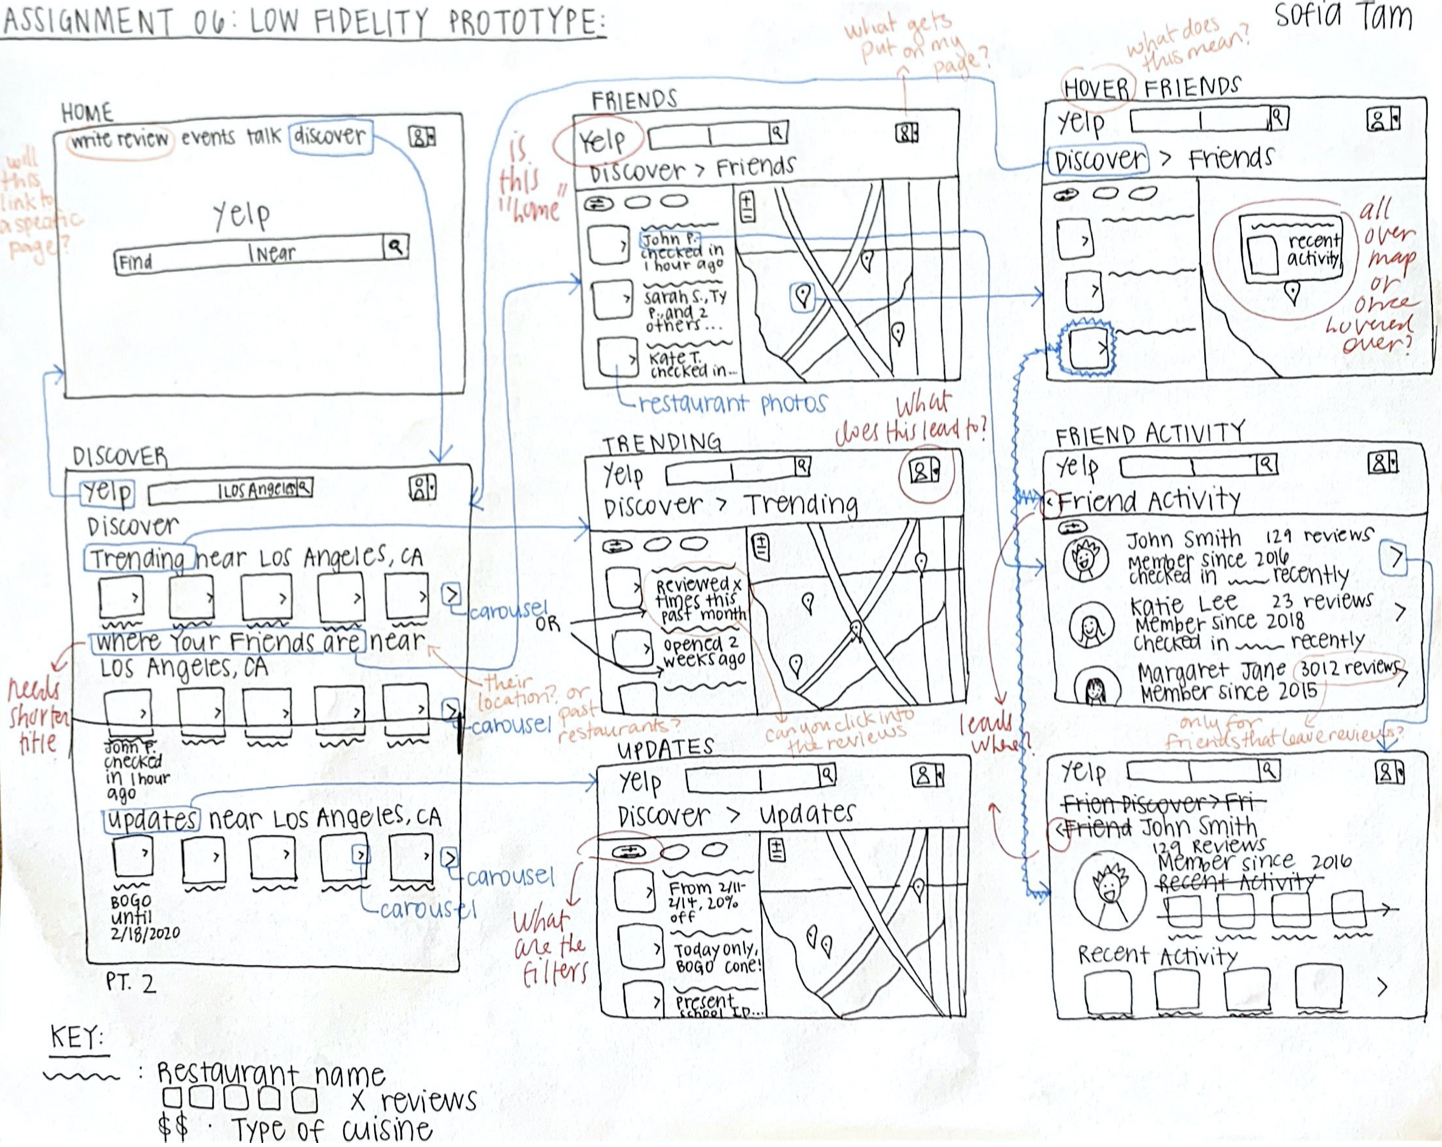 ASSIGNMENT 06: LOW FIDELITY PROTOTYPE:
Sofia Tam
HOME
write review events talk discover
Yelp
Find | Near
will
this
link to
a specific
page?
DISCOVER
Yelp | Los Angeles
Discover
Trending near Los Angeles, CA
carousel
Where Your Friends are near
Los Angeles, CA
carousel
John P.
checked
in 1 hour
ago
needs
shorter
title
their
location? or
past
restaurants?
Updates near Los Angeles, CA
carousel
carousel
BOGO
until
2/18/2020
PT. 2
KEY:
: Restaurant name
X reviews
$$ · Type of cuisine
FRIENDS
what gets
put on my
page?
Yelp
Discover > Friends
is
this
"home"
John P.
checked in
1 hour ago
Sarah S., Ty
P., and 2
others...
Kate T.
checked in...
restaurant photos
TRENDING
What
does this lead to?
Yelp
Discover > Trending
Reviewed x
times this
past month
OR
opened 2
weeks ago
can you click into
the reviews
UPDATES
Yelp
Discover > Updates
From 2/11-
2/14, 20%
off
Today only,
BOGO cone!
Present
school ID...
What
are the
filters
HOVER FRIENDS
what does
this mean?
Yelp
Discover > Friends
recent
activity
all
over
map
or
once
hovered
over?
FRIEND ACTIVITY
Yelp
<Friend Activity
John Smith 129 reviews
Member since 2016
checked in ___ recently
Katie Lee 23 reviews
Member since 2018
checked in ___ recently
Margaret Jane 3012 reviews
Member since 2015
only for
friends that leave reviews?
leads
where?
Yelp
Frien Discover > Fri
<Friend John Smith
129 Reviews
Member since 2016
Recent Activity
Recent Activity